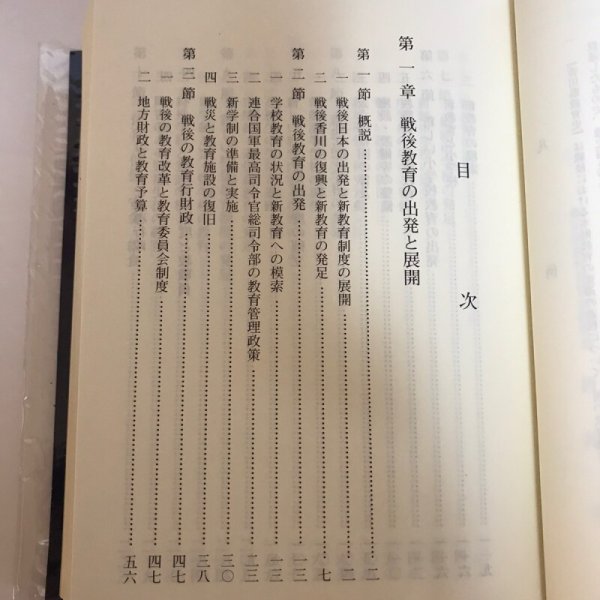 目次
第一章 戦後教育の出発と展開
第一節 概説……二
一 戦後日本の出発と新教育制度の展開……二
二 戦後香川の復興と新教育の発足……七
第二節 戦後教育の出発……一三
一 学校教育の状況と新教育への模索……一三
二 連合国軍最高司令官総司令部の教育管理政策……二三
三 新学制の準備と実施……三〇
四 戦災と教育施設の復旧……三八
第三節 戦後の教育行財政……四七
一 戦後の教育改革と教育委員会制度……四七
二 地方財政と教育予算……五六